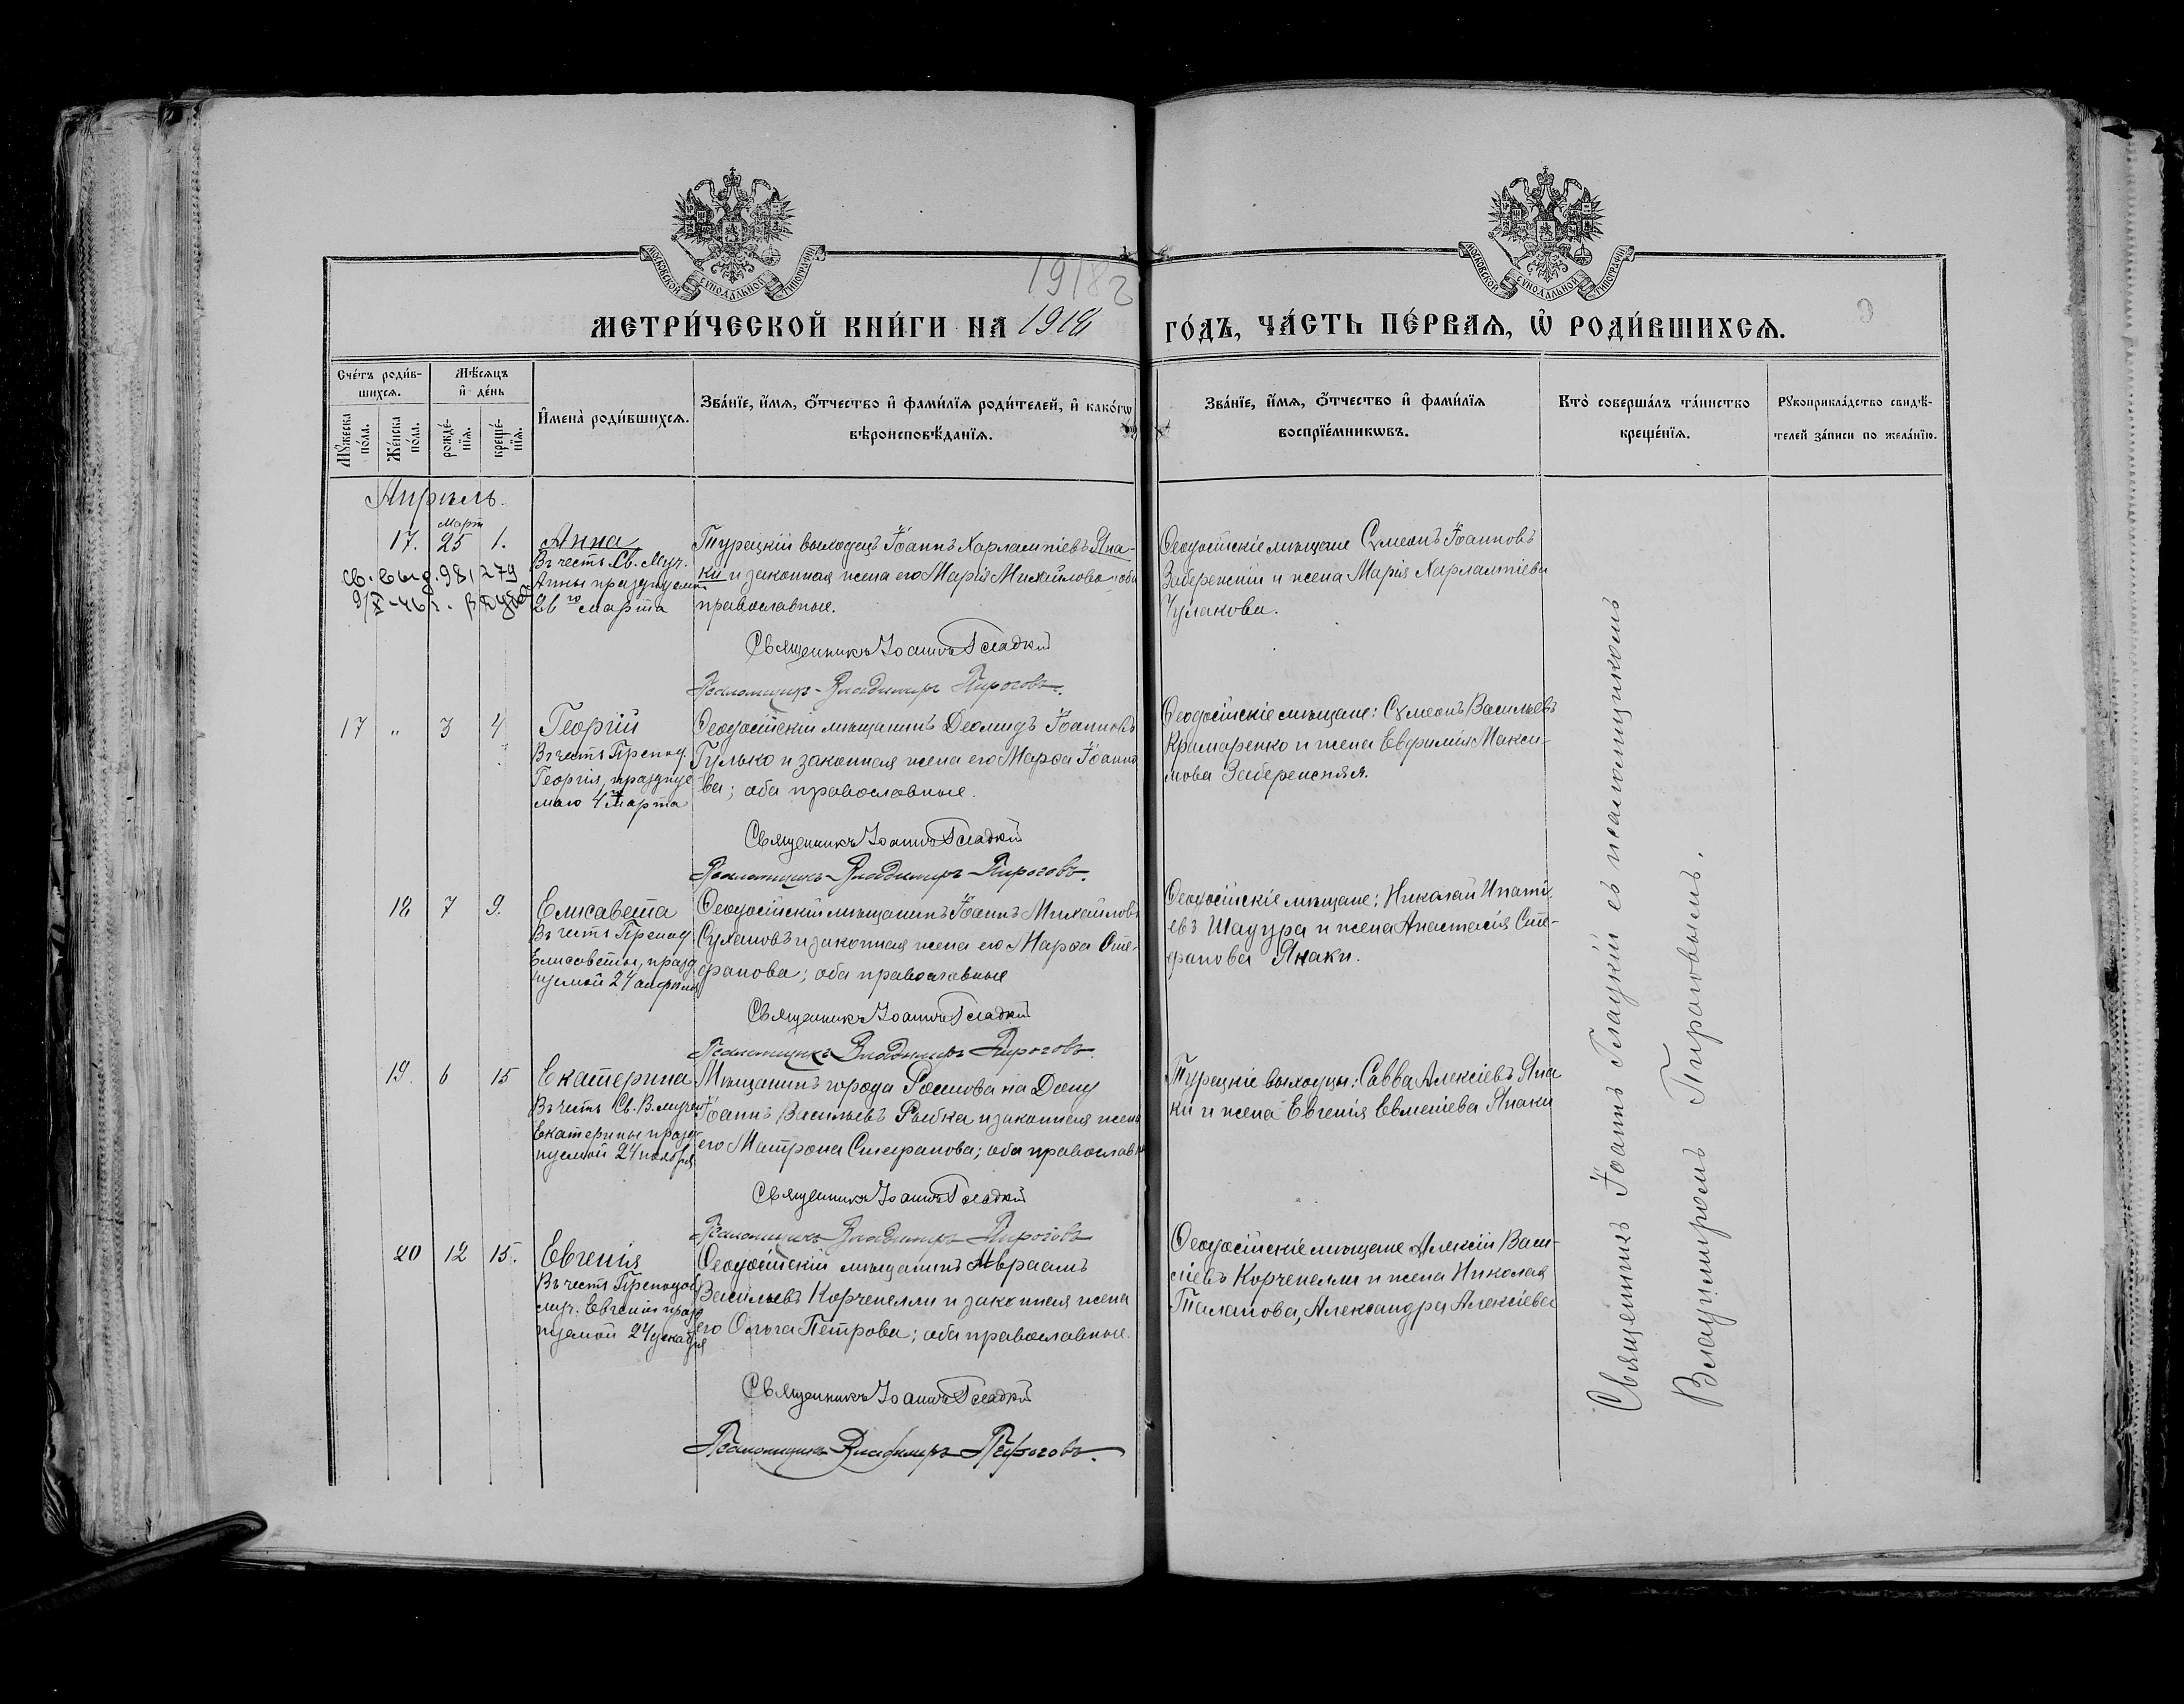 МОСКОВСКОЙ СѴНОДАЛЬНОЙ ТИПОГРАФІИ
МОСКОВСКОЙ СѴНОДАЛЬНОЙ ТИПОГРАФІИ
1918
МЕТРИ́ЧЕСКОЙ КНИ́ГИ НА 1918
ГО́ДЪ, ЧА́СТЬ ПЕ́РВАЯ, Ѡ҆ РОДИ́ВШИХСЯ.
Сче́тъ роди́в-
шихся.
Мѣ́сяцъ
и҆ де́нь
Мꙋ́жеска
по́ла.
Же́нска
по́ла.
рожде́-
нїя.
креще́-
нїя.
И҆мена̀ роди́вшихся.
Зва́нїе, и҆́мя, ѻ҆́тчество и҆ фами́лїя роди́телей, и҆ како́гѡ
вѣроисповѣ́данїя.
Зва́нїе, и҆́мя, ѻ҆́тчество и҆ фами́лїя
воспрїе́мникѡвъ.
Кто̀ соверша́лъ та́инство
креще́нїя.
Рꙋкоприкла́дство свидѣ́-
телей за́писи по жела́нїю.
Апрѣль.
Март
17. 25 1. Анна
Въ честь Св. Муч.
Анны празднуемой
26го марта
Св. выд. 981279
9/X-46 г.
Турецкій выходецъ Іоаннъ Харлампіевъ Яна-
ки и законная жена его Марія Михайлова оба
православные.
Священникъ Іоаннъ Гладкій
Псаломщикъ Владимиръ Пироговъ.
Ѳеодосійскіе мѣщане Сѵмеонъ Іоанновъ
Заберенскій и жена Марія Харлампіева
Чулакова.
17 " 3 4 Георгій
Въ честь Препод.
Георгія, празднуе
маго 4го марта
Ѳеодосійскій мѣщанинъ Деомидъ Іоанновъ
Гулько и законная жена его Марѳа Іоанно
ва; оба православные.
Священникъ Іоаннъ Гладкій
Псаломщикъ Владимиръ Пироговъ.
Ѳеодосійскіе мѣщане: Сѵмеонъ Васильевъ
Крамаренко и жена Евфимія Макси-
мова Заберенская.
18 7 9. Елисавета
Въ честь Препод
Елисаветы, празд
нуемой 24 апрѣля
Ѳеодосійскій мѣщанинъ Іоаннъ Михайловъ
Сухановъ и законная жена его Марѳа Сте-
фанова; оба православные
Священникъ Іоаннъ Гладкій
Псаломщикъ Владимиръ Пироговъ.
Ѳеодосійскіе мѣщане: Николай Ипаті-
евъ Шадура и жена Анастасія Сте-
фанова Янаки.
19. 6 15 Екатерина
Въ честь Св. В. мучен
Екатерины празд
нуемой 24 ноября
Мѣщанинъ города Ростова на Дону
Іоаннъ Васильевъ Рыбка и законная жена
его Матрона Стефанова; оба православн
Священникъ Іоаннъ Гладкій
Псаломщикъ Владимиръ Пироговъ
Турецкіе выходцы: Савва Алексіевъ Яна
ки и жена Евгенія Евменіева Янаки
20 12 15. Евгенія
Въ честь Преподоб
муч. Евгеніи празд
нуемой 24 декабря
Ѳеодосійскій мѣщанинъ Авраамъ
Васильевъ Корченелли и законная жена
его Ольга Петрова; оба православные.
Священникъ Іоаннъ Гладкій
Псаломщикъ Владимиръ Пироговъ.
Ѳеодосійскіе мѣщане Алексій Васи-
ліевъ Корченелли и жена Николая
Таланова, Александра Алексіева
Священникъ Іоаннъ Гладкій съ псаломщикомъ
Владимиромъ Пироговымъ.